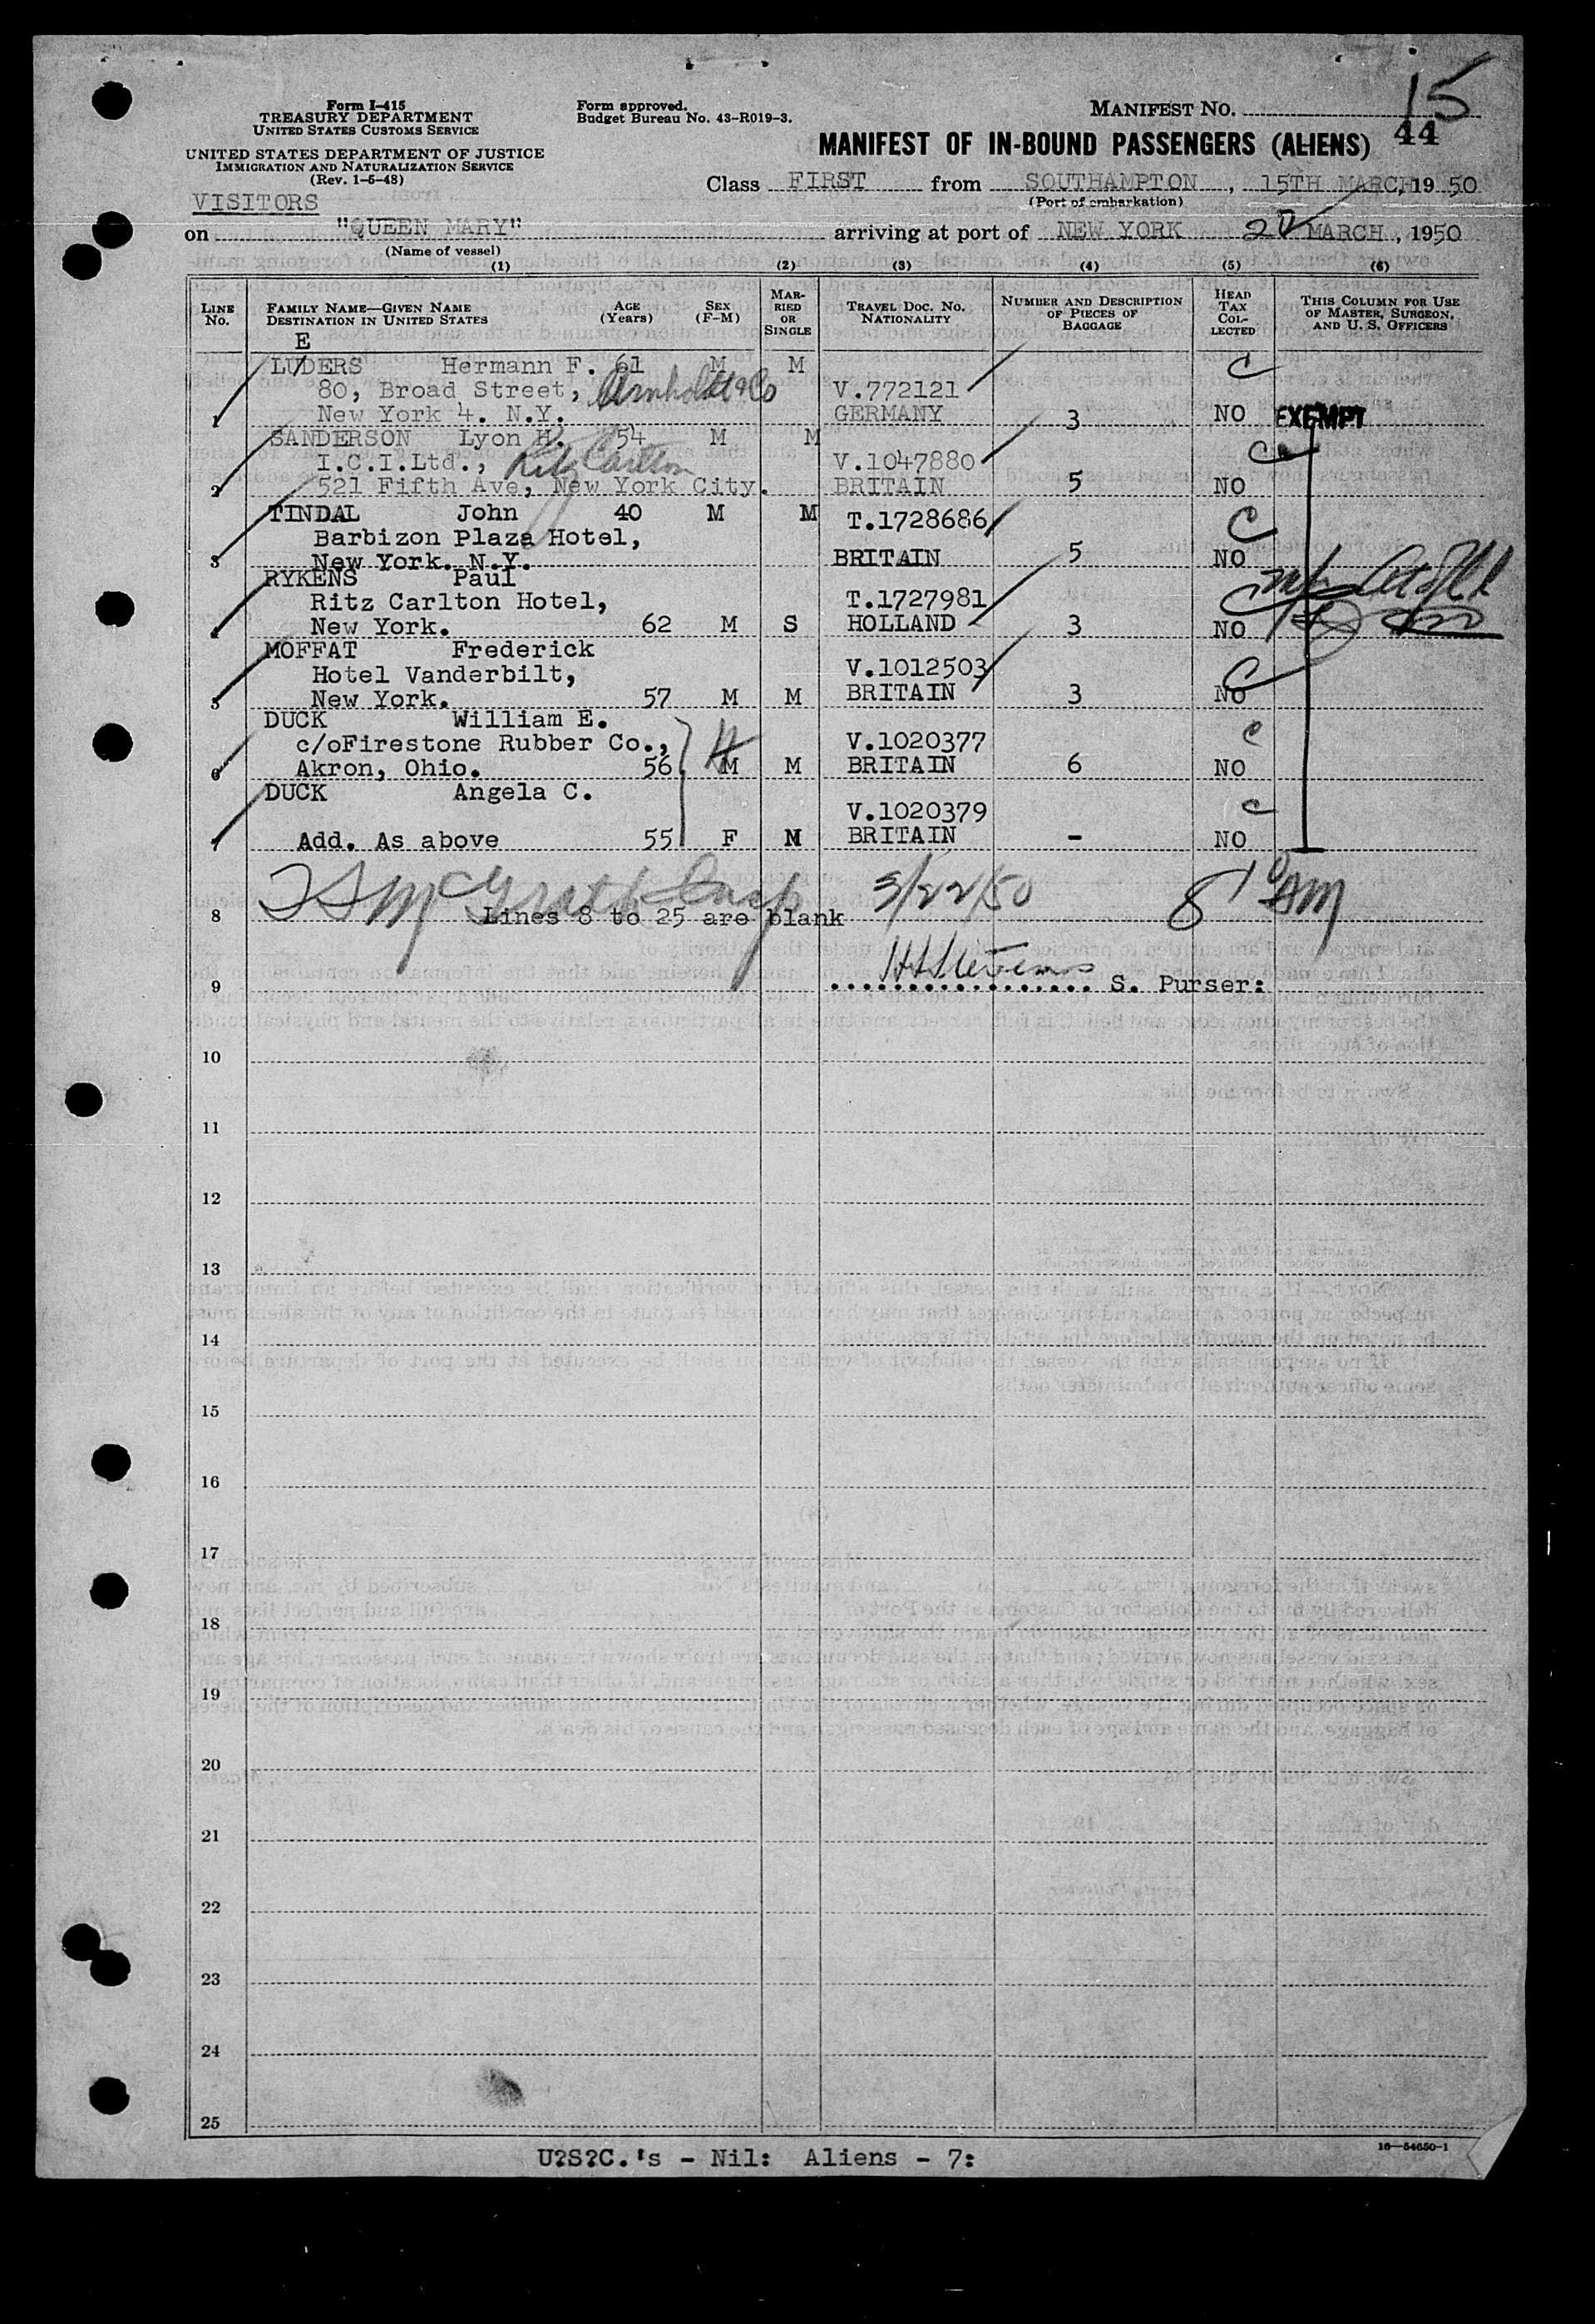 15
Form I-415
TREASURY DEPARTMENT
UNITED STATES CUSTOMS SERVICE
Form approved.
Budget Bureau No. 43-R019-3.
MANIFEST NO.
44
UNITED STATES DEPARTMENT OF JUSTICE
IMMIGRATION AND NATURALIZATION SERVICE
(Rev. 1-5-48)
MANIFEST OF IN-BOUND PASSENGERS (ALIENS)
VISITORS
Class FIRST from SOUTHAMPTON, 15TH MARCH, 1950
(Port of embarkation)
on "QUEEN MARY" arriving at port of NEW YORK MARCH, 1950
(Name of vessel)
(1) (2) (3) (4) (5) (6)
LINE No.
FAMILY NAME—GIVEN NAME
DESTINATION IN UNITED STATES
AGE (Years)
SEX (F-M)
MARRIED OR SINGLE
TRAVEL DOC. NO. NATIONALITY
NUMBER AND DESCRIPTION OF PIECES OF BAGGAGE
HEAD TAX COLLECTED
THIS COLUMN FOR USE OF MASTER, SURGEON, AND U. S. OFFICERS
E
LUDERS Hermann F. 61 M M C
80, Broad Street, Arnholdt & Co V.772121
1 New York 4. N.Y. GERMANY 3 NO EXEMPT
SANDERSON Lyon H. 54 M M C
I.C.I.Ltd., Ritz Carlton V.1047880
2 521 Fifth Ave, New York City. BRITAIN 5 NO
TINDAL John 40 M M T.1728686 C
Barbizon Plaza Hotel,
3 New York. N.Y. BRITAIN 5 NO
RYKENS Paul
Ritz Carlton Hotel, T.1727981 C
4 New York. 62 M S HOLLAND 3 NO
MOFFAT Frederick
Hotel Vanderbilt, V.1012503 C
5 New York. 57 M M BRITAIN 3 NO
DUCK William E.
c/oFirestone Rubber Co., V.1020377 C
6 Akron, Ohio. 56 M M BRITAIN 6 NO
DUCK Angela C.
V.1020379 C
7 Add. As above 55 F M BRITAIN - NO
3/22/50
8 Lines 8 to 25 are blank
9 S. Purser:
10
11
12
13
14
15
16
17
18
19
20
21
22
23
24
25
16—54650-1
U?S?C.'s - Nil: Aliens - 7: